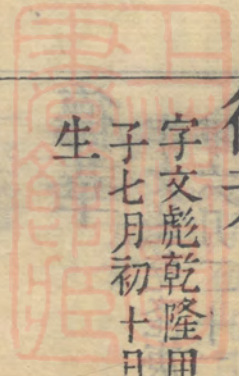 字文彪乾隆甲
子七月初十日
生